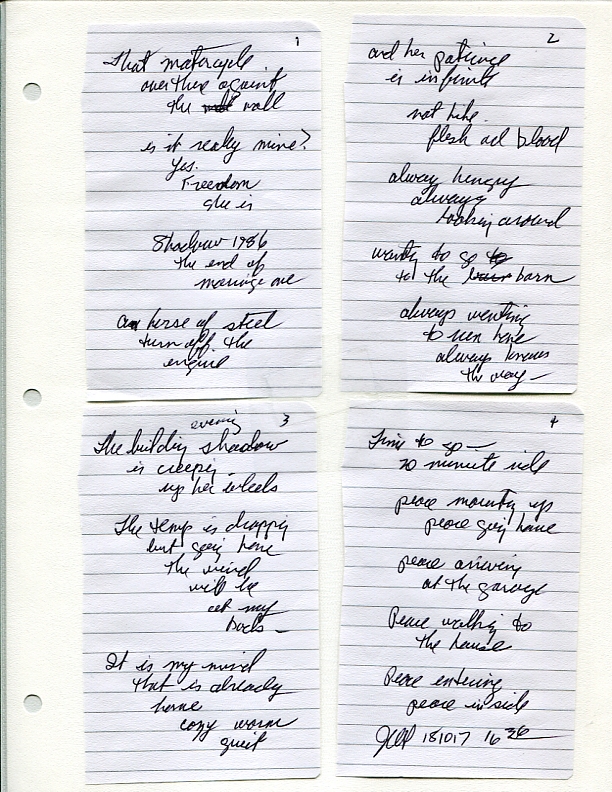 1
That motorcycle
over there against
the wall
is it really mine?
Yes.
Freedom
she is
Shadow 1986
the end of
marriage one
a horse of steel
turn off the
engine
2
and her patience
is infinite
not like
flesh and blood
always hungry
always
looking around
wanting to go
to the barn
always wanting
to run home
always knows
the way —
3
evening
The building shadow
is creeping
up her wheels
The temp is dropping
but going home
the wind
will be
at my
back —
It is my mind
that is already
home
cozy warm
quiet
4
Time to go —
20 minute ride
peace mounting up
peace going home
peace arriving
at the garage
Peace walking to
the house
Peace entering
peace inside
181017 1636